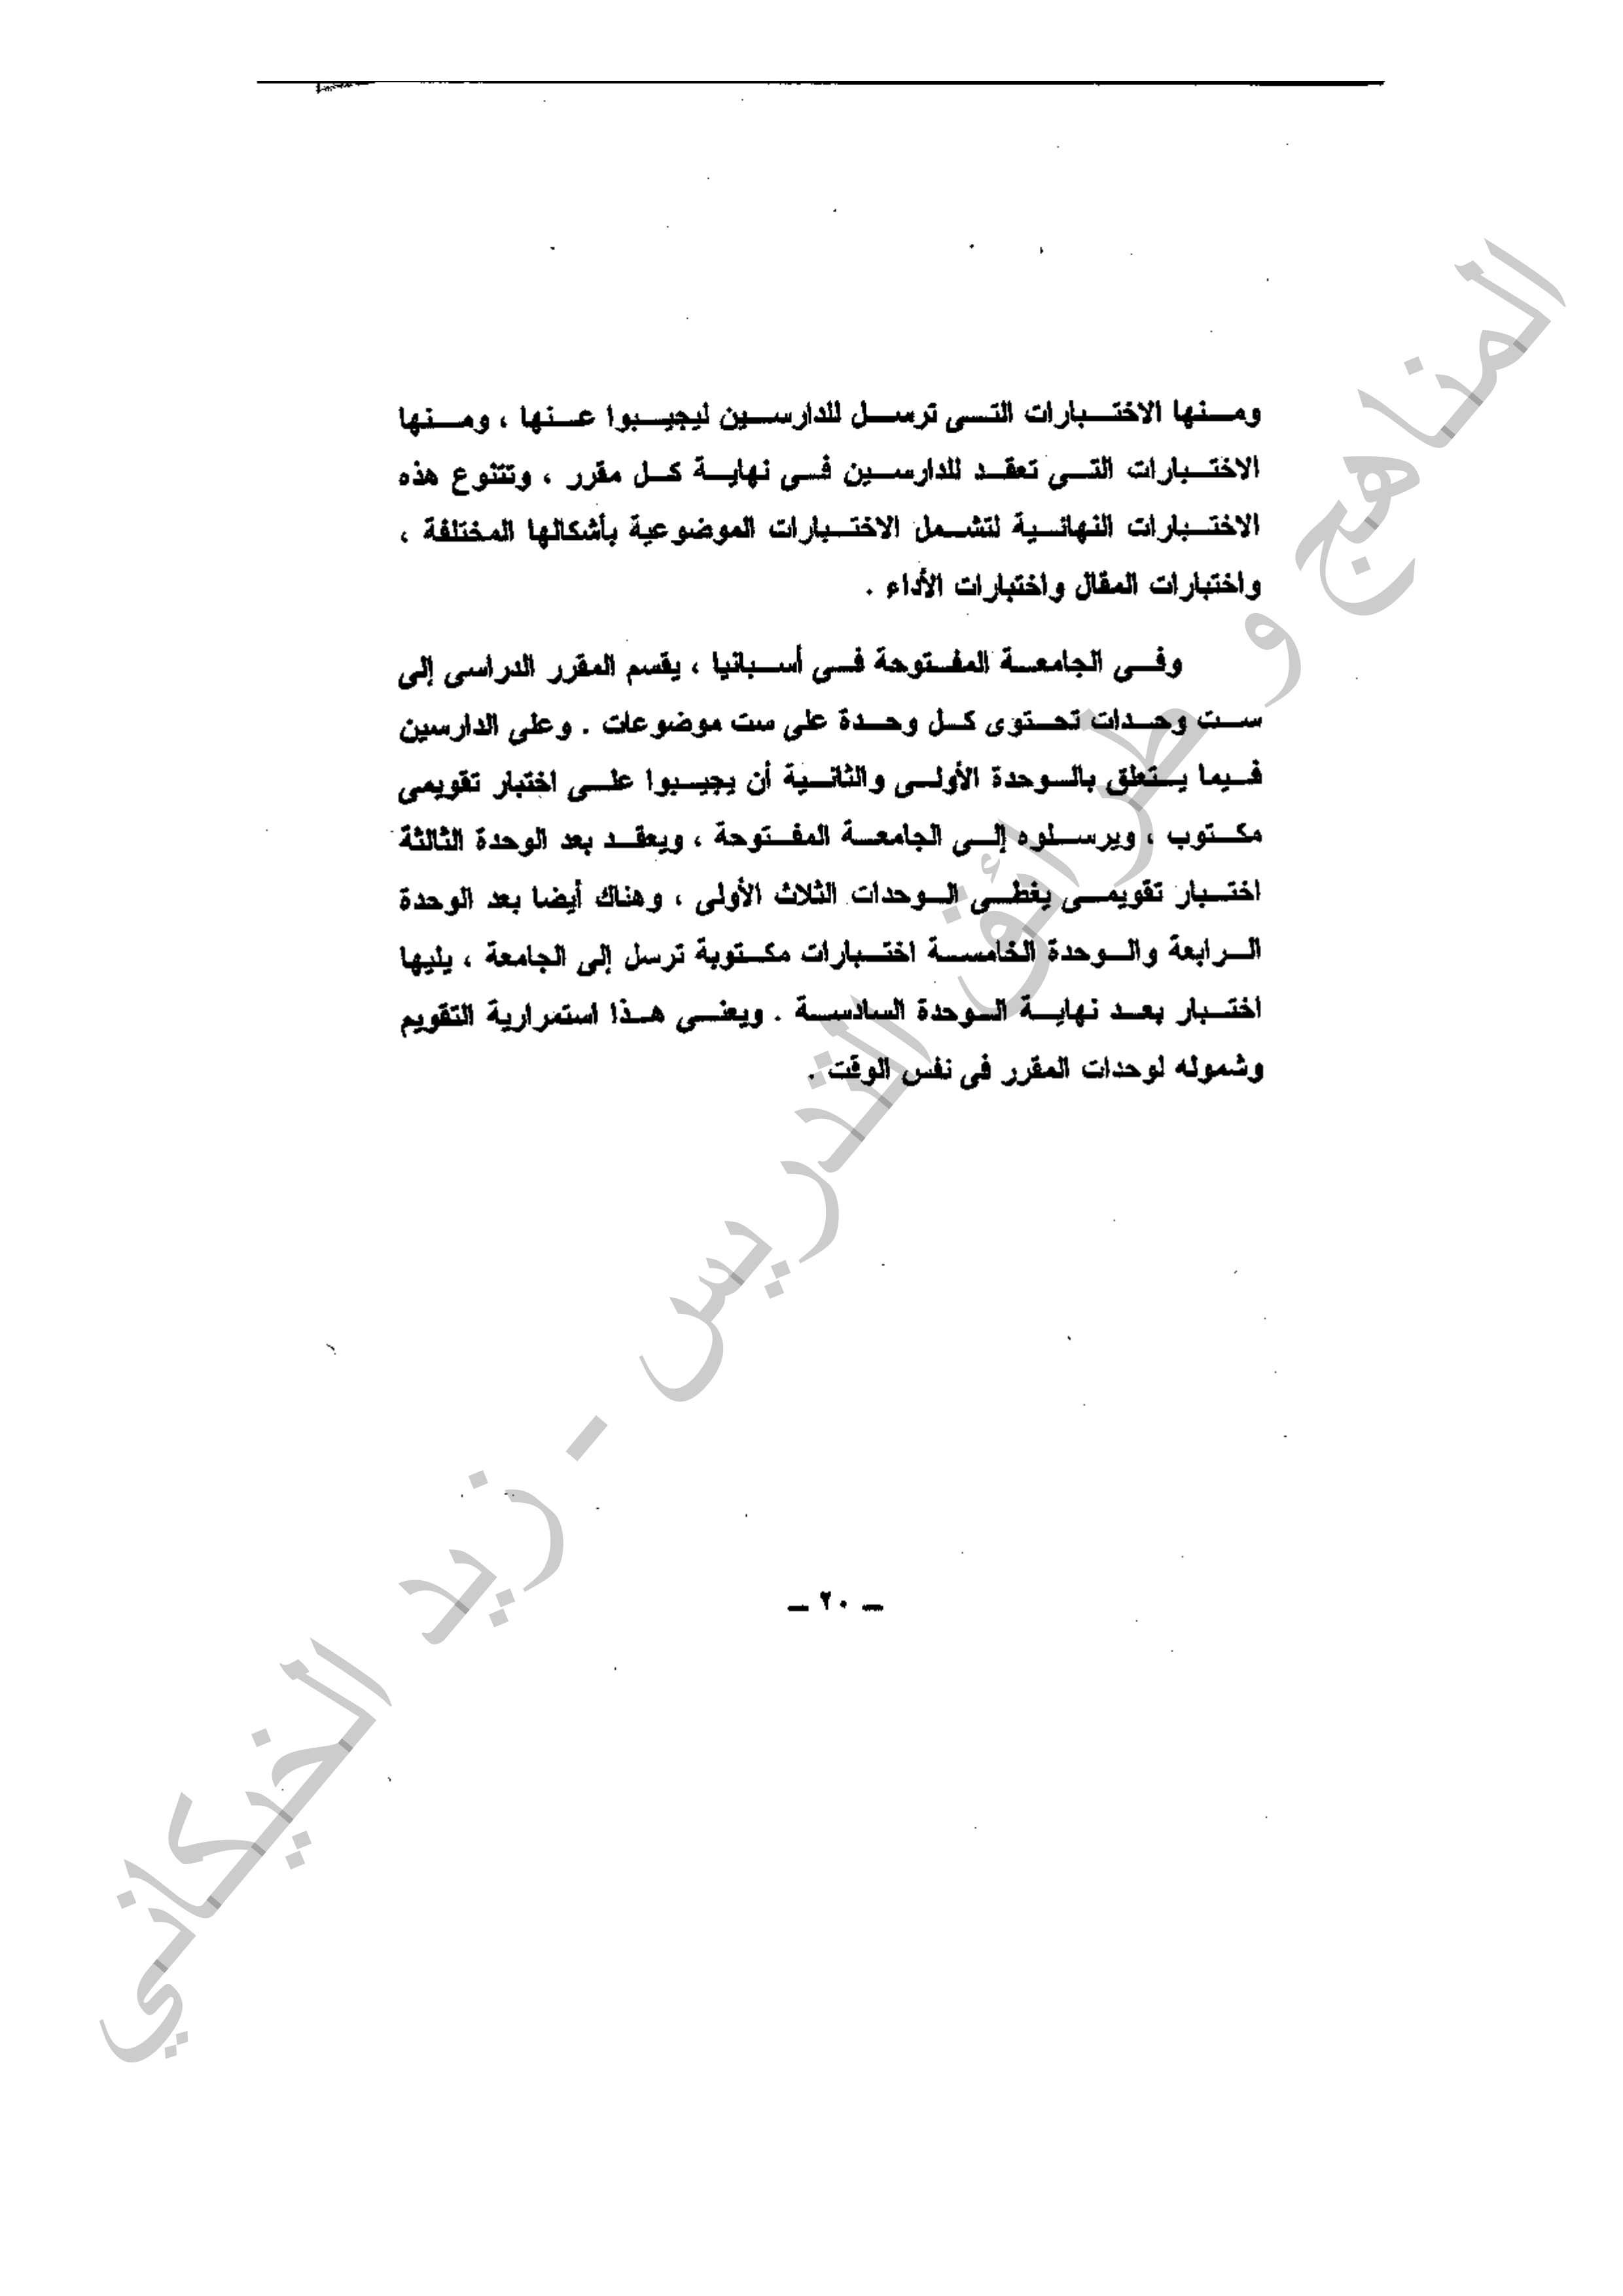 ومنها الاختبارات التى ترسل للدارسين ليجيبوا عنها ، ومنها
الاختبارات التى تعقد للدارسين فى نهاية كل مقرر ، وتتنوع هذه
الاختبارات النهائية لتشمل الاختبارات الموضوعية بأشكالها المختلفة ،
واختبارات المقال واختبارات الأداء .
وفى الجامعة المفتوحة فى أسبانيا ، يقسم المقرر الدراسى إلى
ست وحدات تحتوى كل وحدة على ست موضوعات . وعلى الدارسين
فيما يتعلق بالوحدة الأولى والثانية أن يجيبوا على اختبار تقويمى
مكتوب ، ويرسلوه إلى الجامعة المفتوحة ، ويعقد بعد الوحدة الثالثة
اختبار تقويمى يغطى الوحدات الثلاث الأولى ، وهناك أيضا بعد الوحدة
الرابعة والوحدة الخامسة اختبارات مكتوبة ترسل إلى الجامعة ، يليها
اختبار بعد نهاية الوحدة السادسة . ويعنى هذا استمرارية التقويم
وشموله لوحدات المقرر فى نفس الوقت .
ــ ٢٠ ــ
المناهج و طرائق التدريس - زيد الخيكاني